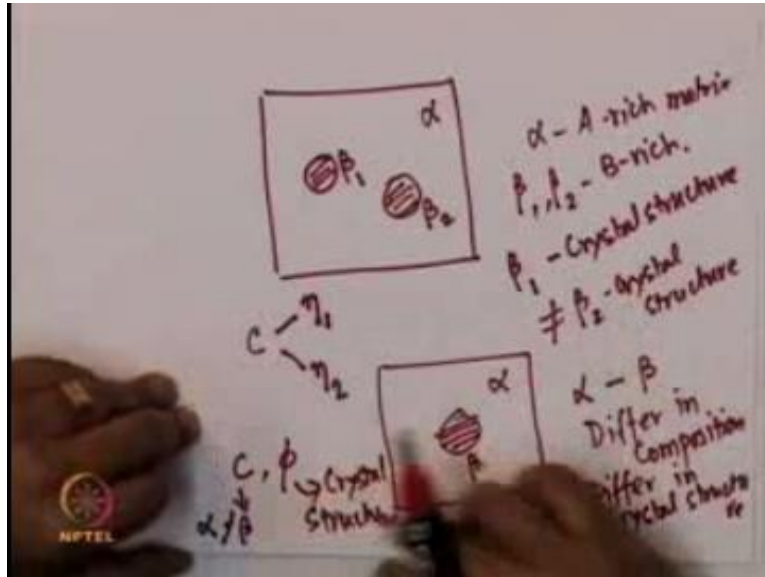 α
β₁
β₂
α - A-rich matrix
β₁, β₂ - B-rich.
β₁ - Crystal structure
≠ β₂ - Crystal
structure
C
η₁
η₂
α
β
α - β
Differ in
Composition
Differ in
Crystal structu
re
C, φ → Crystal
structure
α ≠ β
NPTEL